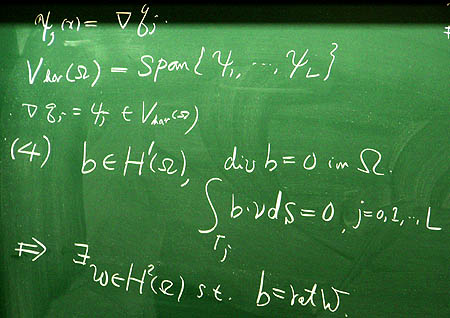 ψj(x) = ∇qj.
Vhar(Ω) = Span{ψ1, ⋯, ψL}
∇qj = ψj ∈ Vhar(Ω)
(4) b ∈ H¹(Ω), div b = 0 in Ω.
∫Γj b·ν dS = 0, j=0,1,⋯,L
⇒ ∃w∈H²(Ω) s.t. b = rot w.